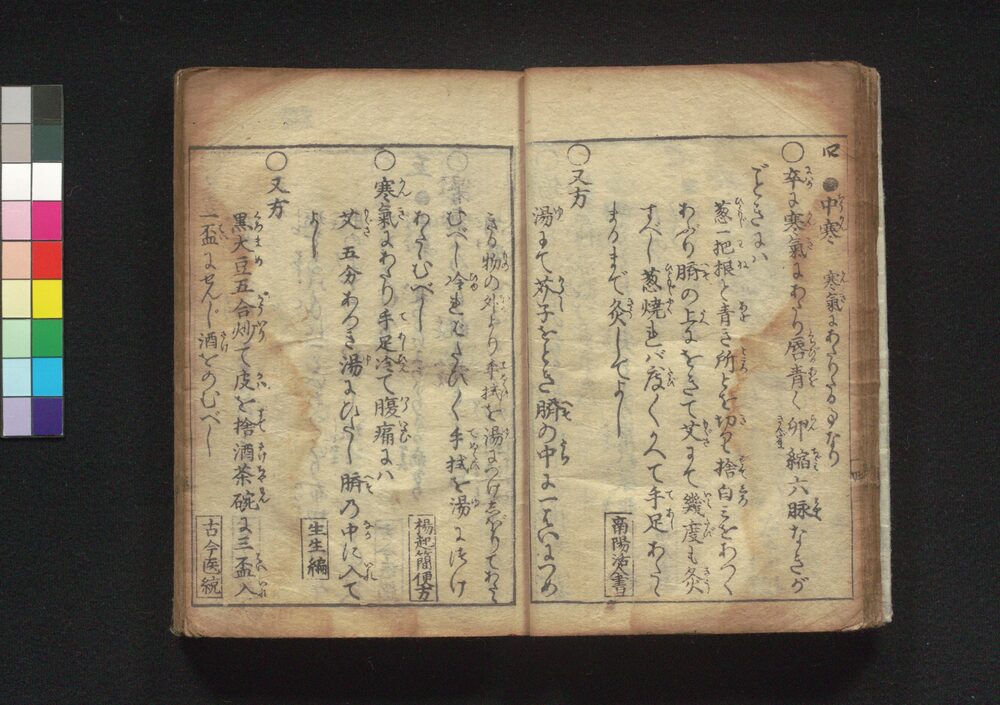 口 ●中寒 寒氣にあたりたるなり
○卒に寒氣にあたり唇青く卵縮六脉なきが
ごときには
葱一把根と青き所とを切り捨白ミをあつく
あぶり臍の上にをきて艾にて幾度も灸
すべし葱焼れバ度々かへて手足あたゝ
まるまで灸してよし 南陽活人書
○又方
湯にて芥子をとき臍の中に一はいにつめ
きる物の外より手拭を湯につけしぼりてあたゝ
むべし冷れバたびく手拭を湯につけ
あたゝむべし 楊起簡便方
○寒氣にあたり手足冷て腹痛にハ
艾 五分あつき湯にひたし臍の中に入て
よし 生生編
○又方
黒大豆五合炒て皮を捨酒茶碗に三盃入
一盃にせんじ酒をのむべし 古今医統